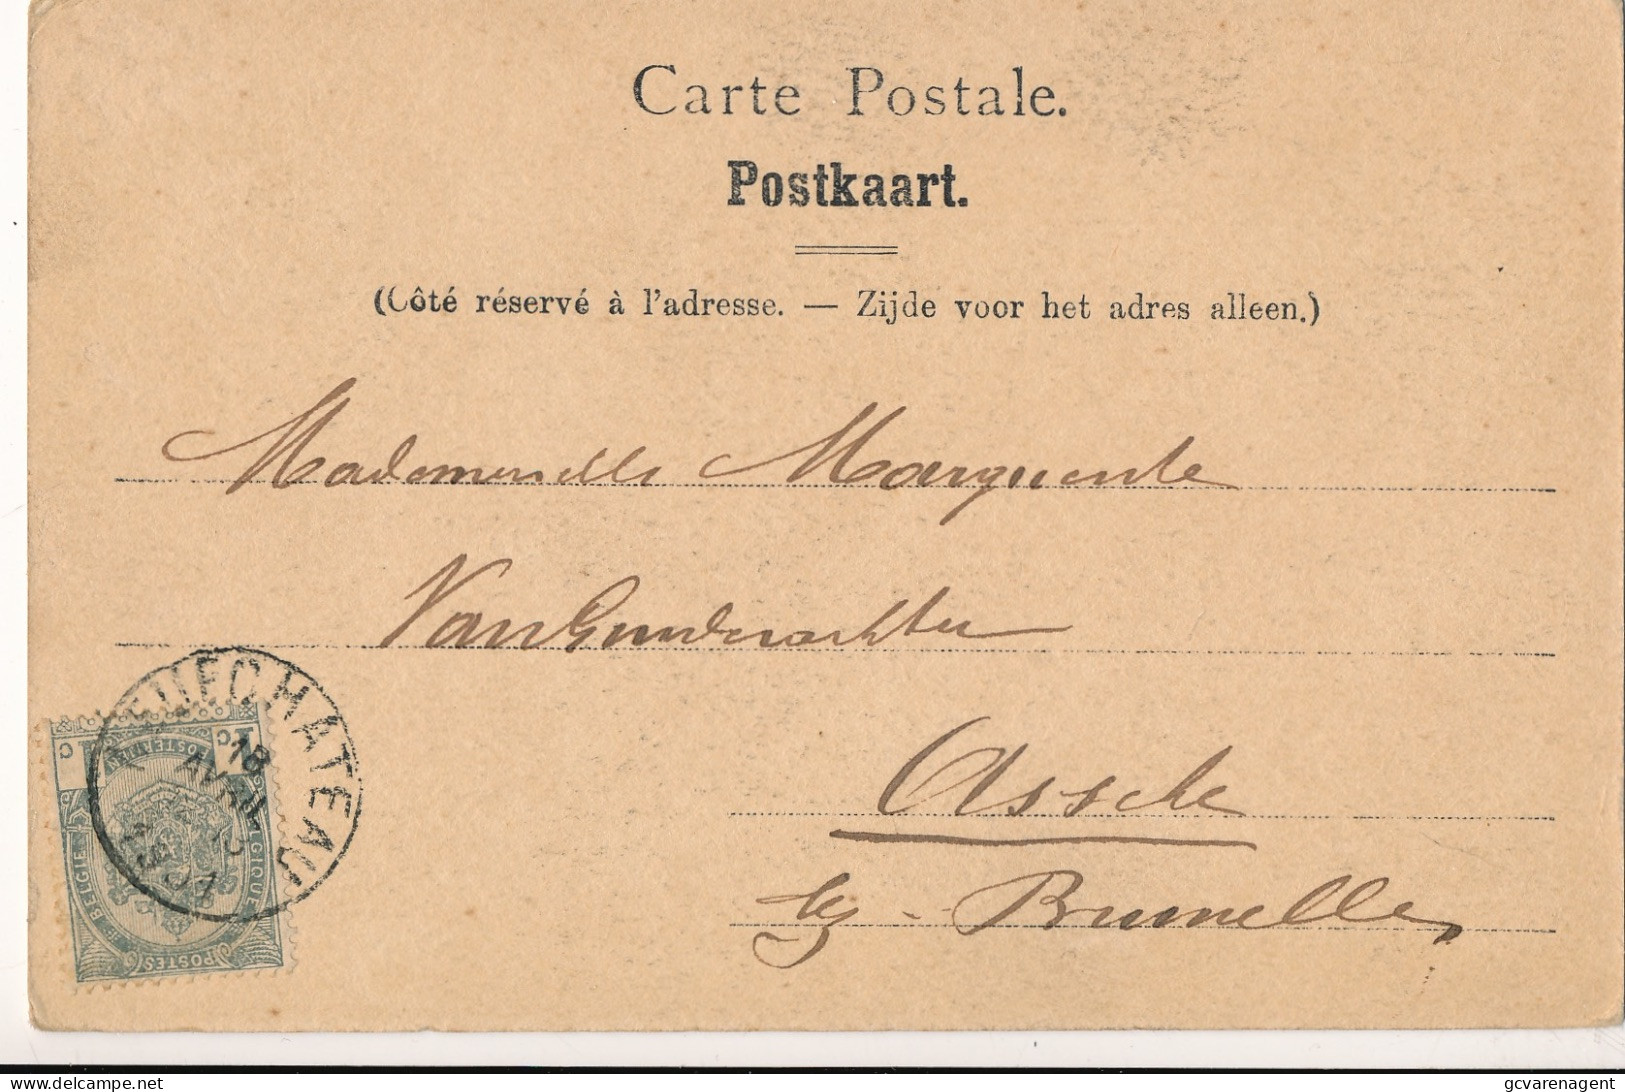 Carte Postale.
Postkaart.
(Côté réservé à l'adresse. — Zijde voor het adres alleen.)
Mademoiselle Marguerite
Assche
lez - Bruxelles
NEUFCHATEAU
18
AVRIL
1 C
1 C
POSTERIJEN
BELGIE
BELGIQUE
POSTES
delcampe.net
gcvarenagent